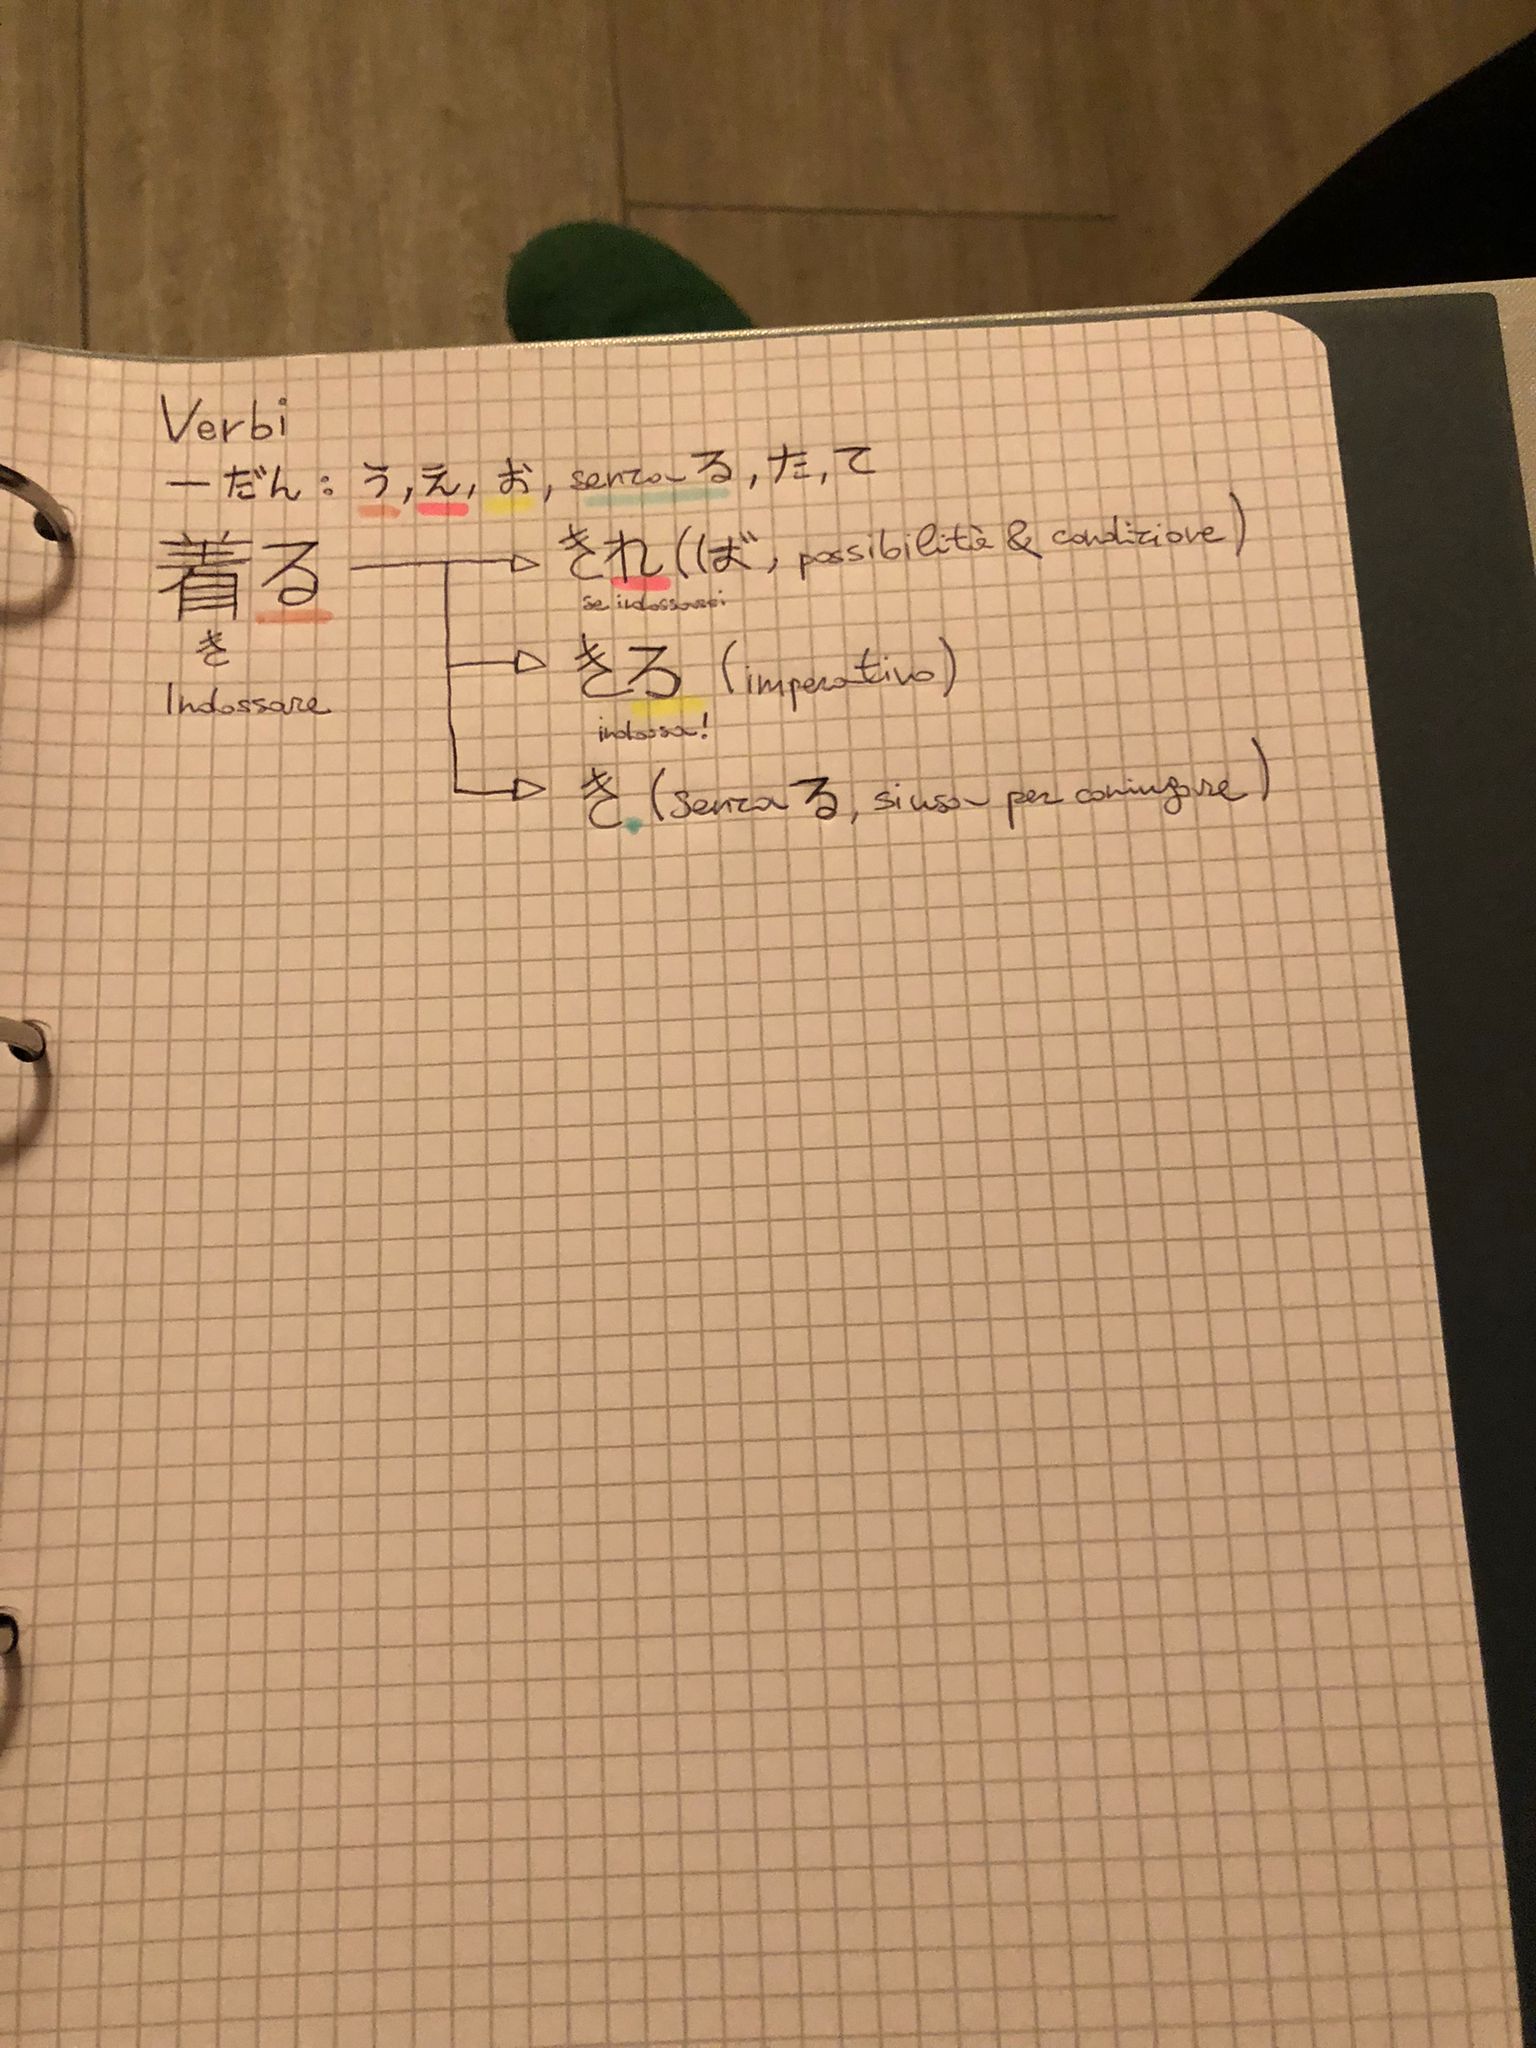 Verbi
一だん: う, え, お, senza る, た, て
着る
き
Indossare
きれ (ば, possibilità & condizione)
se indossassi
きろ (imperativo)
indossa!
き (senza る, si usa per coniugare)